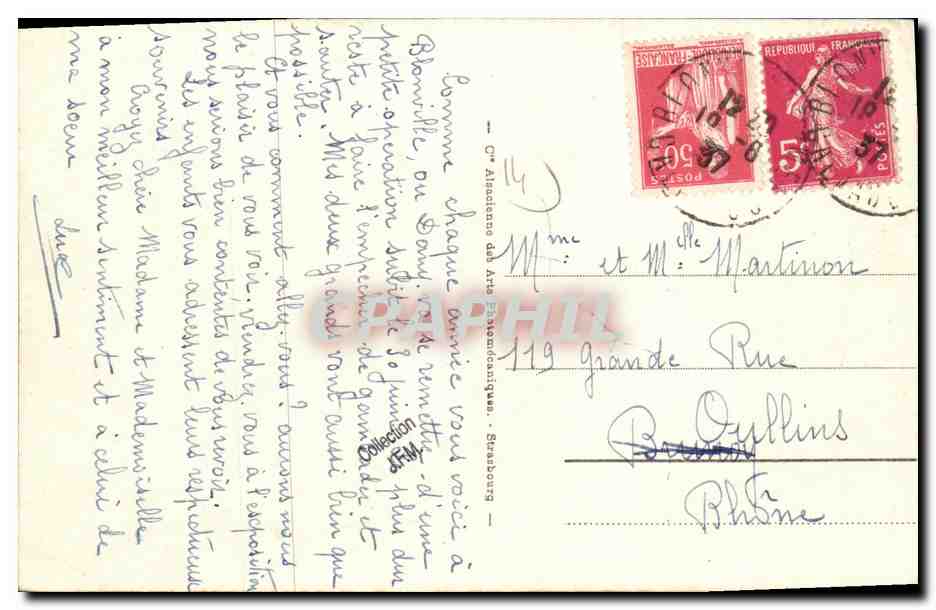 Comme chaque année vous voici à
Blonville, où Dany va se remettre d'une
petite opération subie le 30 juin, le plus dur
reste à faire l'empêcher de gambader et
sauter. Mes deux grands vont aussi bien que
possible.
Et vous comment allez-vous? aurons nous
le plaisir de vous voir. Viendrez vous à l'exposition
nous serions bien contentes de vous revoir.
Les enfants vous adressent leurs respectueux
souvenirs.
Croyez chère Madame et Mademoiselle
à mon meilleur sentiment et à celui de
ma soeur
— Cie Alsacienne des Arts Photomécaniques. - Strasbourg —
14
REPUBLIQUE FRANÇAISE
50c
POSTES
REPUBLIQUE FRANÇAISE
5c
POSTES
Mme et Mlle Martinon
119 Grande Rue
Oullins
Rhône
Collection
J.F.M.
CPAPHIL